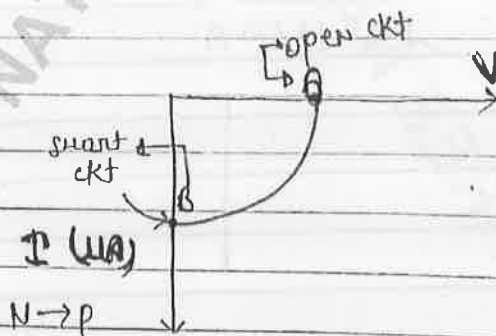 open ckt
V
short
ckt
I (μA)
N → P